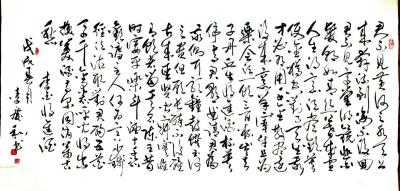 君不見黃河之水天上
來奔流到海不復回
君不見高堂明鏡悲白
髮朝如青絲暮成雪
人生得意須盡歡莫
使金樽空對月天生我
才必有用千金散盡還
復來烹羊宰牛且為
樂會須一飲三百杯岑夫
子丹丘生將進酒杯莫
停與君歌一曲請君為
我傾耳聽鐘鼓饌玉何
足貴但願長醉不復醒
古來聖賢皆寂寞唯
有飲者留其名陳王昔
時宴平樂斗酒十千恣
歡謔主人何為言少錢
徑須沽取對君酌五花
馬千金裘呼兒將出
換美酒與爾同銷萬古
愁 李白將進酒
戊戌年夏月 李書